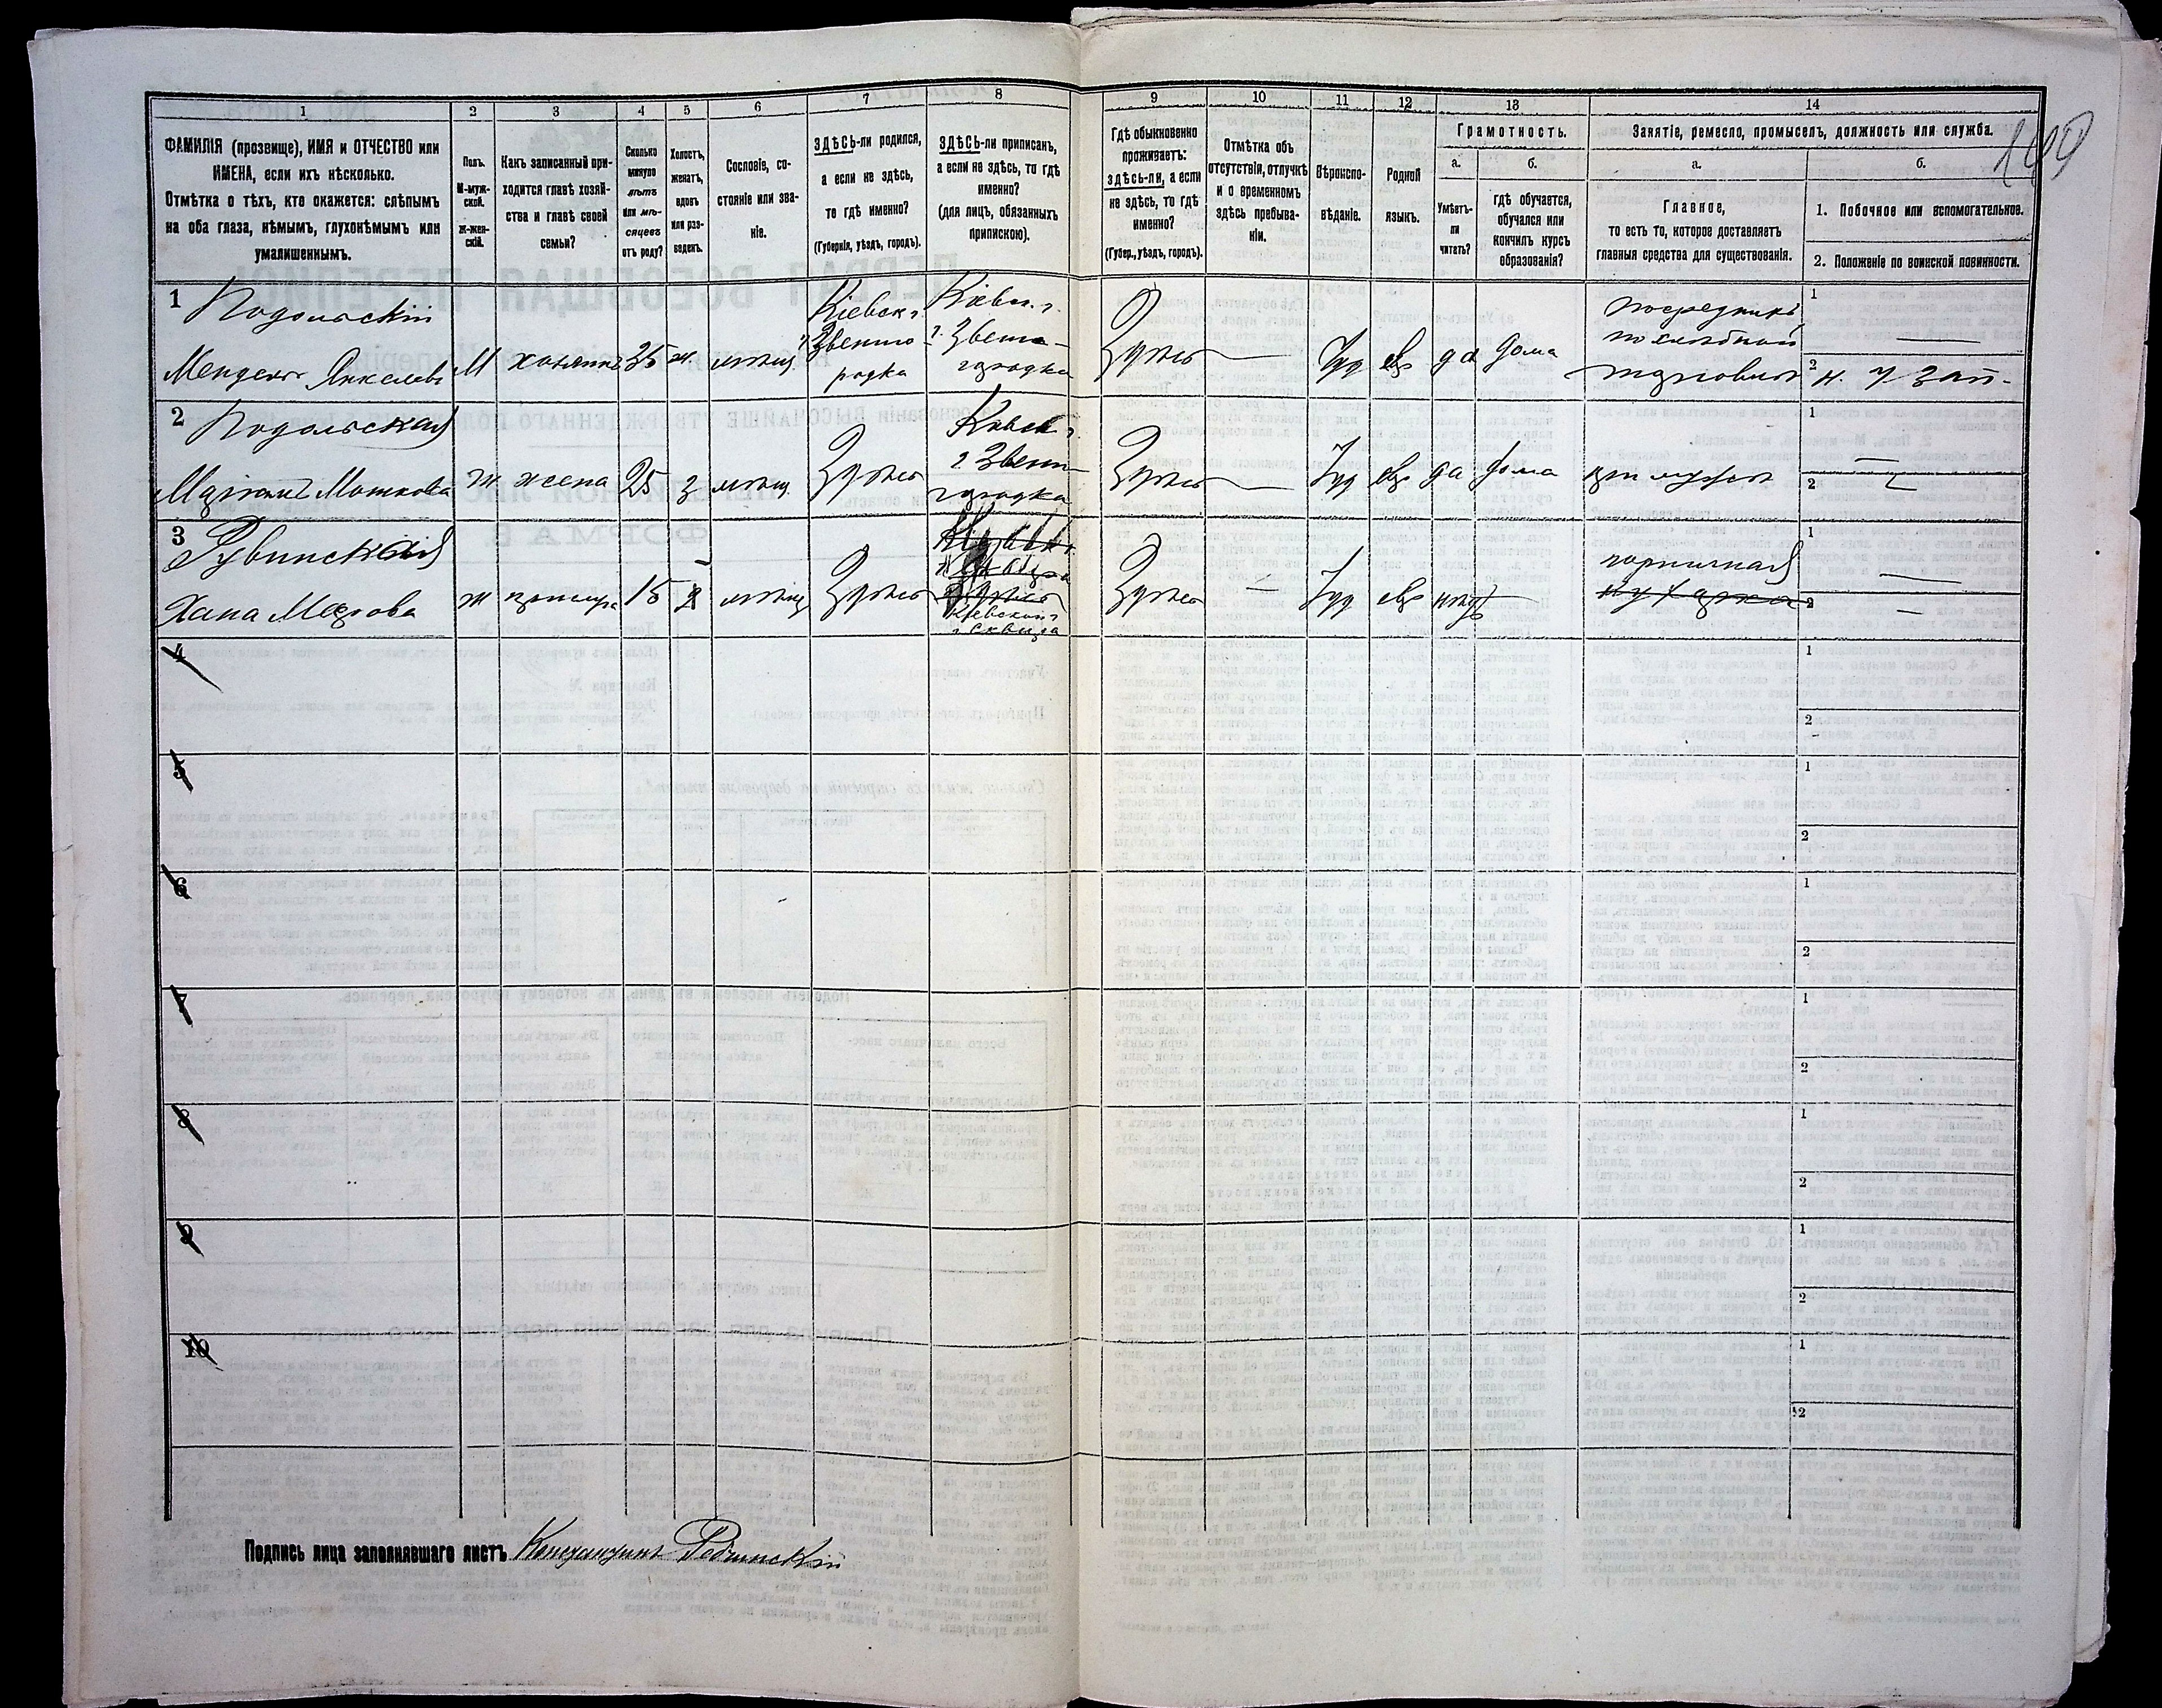 1 2 3 4 5 6 7 8 9 10 11 12 13 14
ФАМИЛІЯ (прозвище), ИМЯ и ОТЧЕСТВО или
ИМЕНА, если ихъ нѣсколько.
Отмѣтка о тѣхъ, кто окажется: слѣпымъ
на оба глаза, нѣмымъ, глухонѣмымъ или
умалишеннымъ.
Полъ.
М-муж-
ской.
Ж-жен-
скій.
Какъ записанный при-
ходится главѣ хозяй-
ства и главѣ своей
семьи?
Сколько
минуло
лѣтъ
или мѣ-
сяцевъ
отъ роду?
Холостъ,
женатъ,
вдовъ
или раз-
веденъ.
Сословіе, со-
стояніе или зва-
ніе.
ЗДѢСЬ-ли родился,
а если не здѣсь,
то гдѣ именно?
(Губернія, уѣздъ, городъ).
ЗДѢСЬ-ли приписанъ,
а если не здѣсь, то гдѣ
именно?
(для лицъ, обязанныхъ
припискою).
Гдѣ обыкновенно
проживаетъ:
здѣсь-ли, а если
не здѣсь, то гдѣ
именно?
(Губер., уѣздъ, городъ).
Отмѣтка объ
отсутствіи, отлучкѣ
и о временномъ
здѣсь пребыва-
ніи.
Вѣроиспо-
вѣданіе.
Родной
языкъ.
Грамотность.
а.
Умѣетъ-
ли
читать?
б.
гдѣ обучается,
обучался или
кончилъ курсъ
образованія?
Занятіе, ремесло, промыселъ, должность или служба.
а.
Главное,
то есть то, которое доставляетъ
главныя средства для существованія.
б.
1. Побочное или вспомогательное.
2. Положеніе по воинской повинности.
1 Подольскій
Мендель Янкелевъ
М хозяинъ 35 ж. мѣщ.
Кіевск г.
г. Звенигородка
Кіевск. г.
г. Звенигородка
Здѣсь — Іуд евр да дома
посредникъ
по хлѣбной
торговлѣ
1 —
2
2 Подольская
Мошкова
Ж жена 25 з мѣщ. Здѣсь
Кіевск г.
г. Звенигородка
Здѣсь — Іуд евр да дома при мужѣ
1 —
2 —
3 Рувинская
Хана
Ж 15 мѣщ Здѣсь
Кіевской г
г Сквира
Здѣсь — Іуд евр нѣтъ
горничная
кухарка
1 —
2 —
4
1
2
5
1
2
6
1
2
7
1
2
8
1
2
9
1
2
10
1
2
Подпись лица заполнявшаго листъ Константинъ